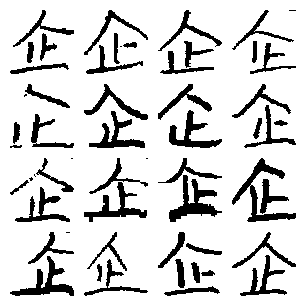 企企企企
企企企企
企企企企
企企企企